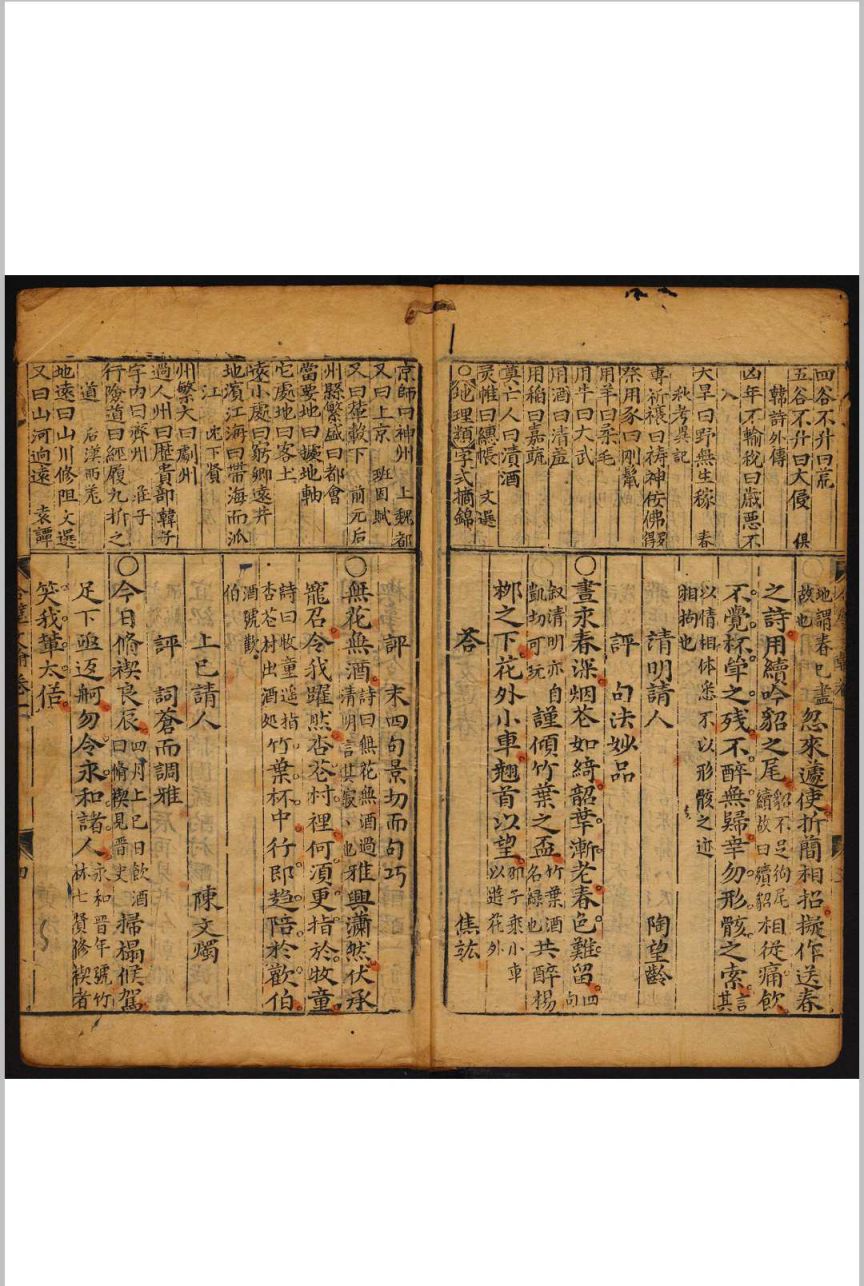 四谷不升曰荒
五谷不升曰大侵　俱
韓詩外傳
凶年不輸稅曰歲惡不
入
大旱曰野無生稼　春
秋考異記
專祈禳曰祷神佞佛
祭用豕曰剛鬣
用羊曰柔毛
用牛曰大武
用酒曰清羞
用稻曰嘉蔬
奠亡人曰漬酒
灵帷曰繐帳　文選
○地理類字式摘錦
地謂春已盡
故也
忽來遽使折簡相招擬作送春
之詩用續吟貂之尾
貂不足狗尾
續故曰續貂
相從痛飲
不覺杯斚之残不醉無歸幸勿形骸之索
言
其
以情相体悉不以形骸之迹
相拘也
清明請人　陶望齡
評　句法妙品
○晝永春深烟花如綺韶華漸老春色難留
四
句
叙清明亦自
凱切可玩
謹傾竹葉之盃
竹葉酒
名緑也
共醉楊
栁之下花外小車翹首以望
邵子乘小車
以遊花外
答　焦竑
京師曰神州　上魏都
又曰上京　班固賦
又曰輦轂下　前元后
州縣繁盛曰都會
當要地曰據地軸
宅處地曰客上
遠小處曰窮鄉遠井
地濱江海曰帶海而派
江　沈下賢
州繁大曰劇州
過人州曰歷貴部韓子
宇内曰齊州　淮子
行險道曰經履九折之
道　后漢西羗
地遠曰山川修阻文選
又曰山河逈遠　袁譚
評　末四句景切而句巧
○無花無酒
詩曰無花無酒過
清明言其寂寂也
雅興瀟然伏承
寵召令我躍然杏花村裡何須更指於牧童
詩曰牧童遥指
杏花村出酒処
竹葉杯中行即趋陪於歡伯
酒號歡
伯
上巳請人　陳文燭
評　詞蒼而調雅
○今日脩禊良辰
四月上巳日飲酒
曰脩禊見晋史
掃榻候駕
足下亟迈舸勿令永和諸人
永和晋年號竹
林七賢修禊者
笑我輩太俗